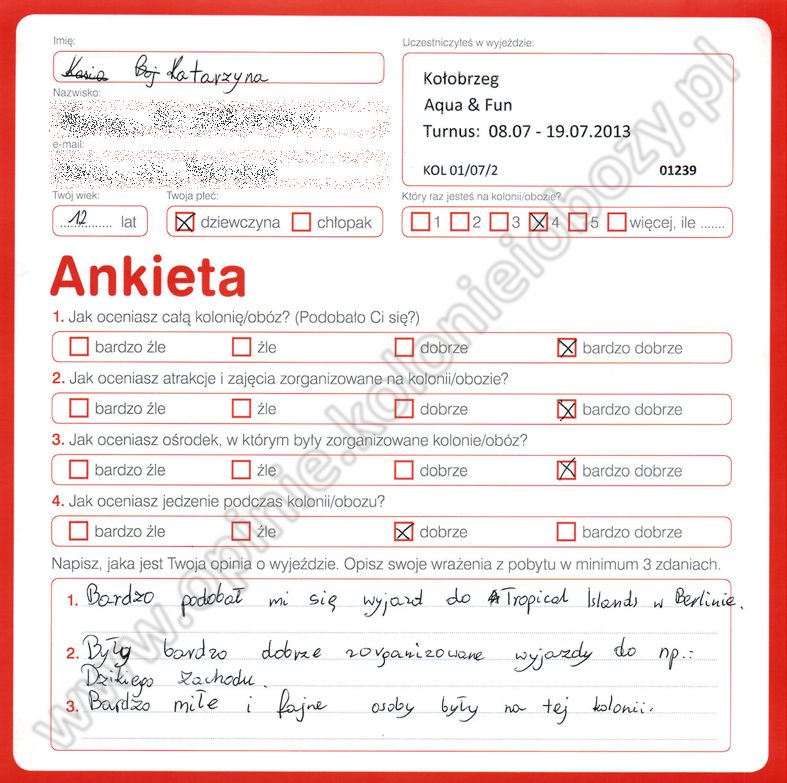 Imię:
Kasia Boj Katarzyna
Nazwisko:
e-mail:
Twój wiek:
12 lat
Twoja płeć:
dziewczyna chłopak
Uczestniczyłeś w wyjeździe:
Kołobrzeg
Aqua & Fun
Turnus: 08.07 - 19.07.2013
KOL 01/07/2 01239
Który raz jesteś na kolonii/obozie?
1 2 3 4 5 więcej, ile .......
Ankieta
1. Jak oceniasz całą kolonię/obóz? (Podobało Ci się?)
bardzo źle źle dobrze bardzo dobrze
2. Jak oceniasz atrakcje i zajęcia zorganizowane na kolonii/obozie?
bardzo źle źle dobrze bardzo dobrze
3. Jak oceniasz ośrodek, w którym były zorganizowane kolonie/obóz?
bardzo źle źle dobrze bardzo dobrze
4. Jak oceniasz jedzenie podczas kolonii/obozu?
bardzo źle źle dobrze bardzo dobrze
Napisz, jaka jest Twoja opinia o wyjeździe. Opisz swoje wrażenia z pobytu w minimum 3 zdaniach.
1. Bardzo podobał mi się wyjazd do Tropical Islands w Berlinie.
2. Były bardzo dobrze zorganizowane wyjazdy do np.:
Dzikiego Zachodu.
3. Bardzo miłe i fajne osoby były na tej kolonii.
www.opinie.kolonieiobozy.pl